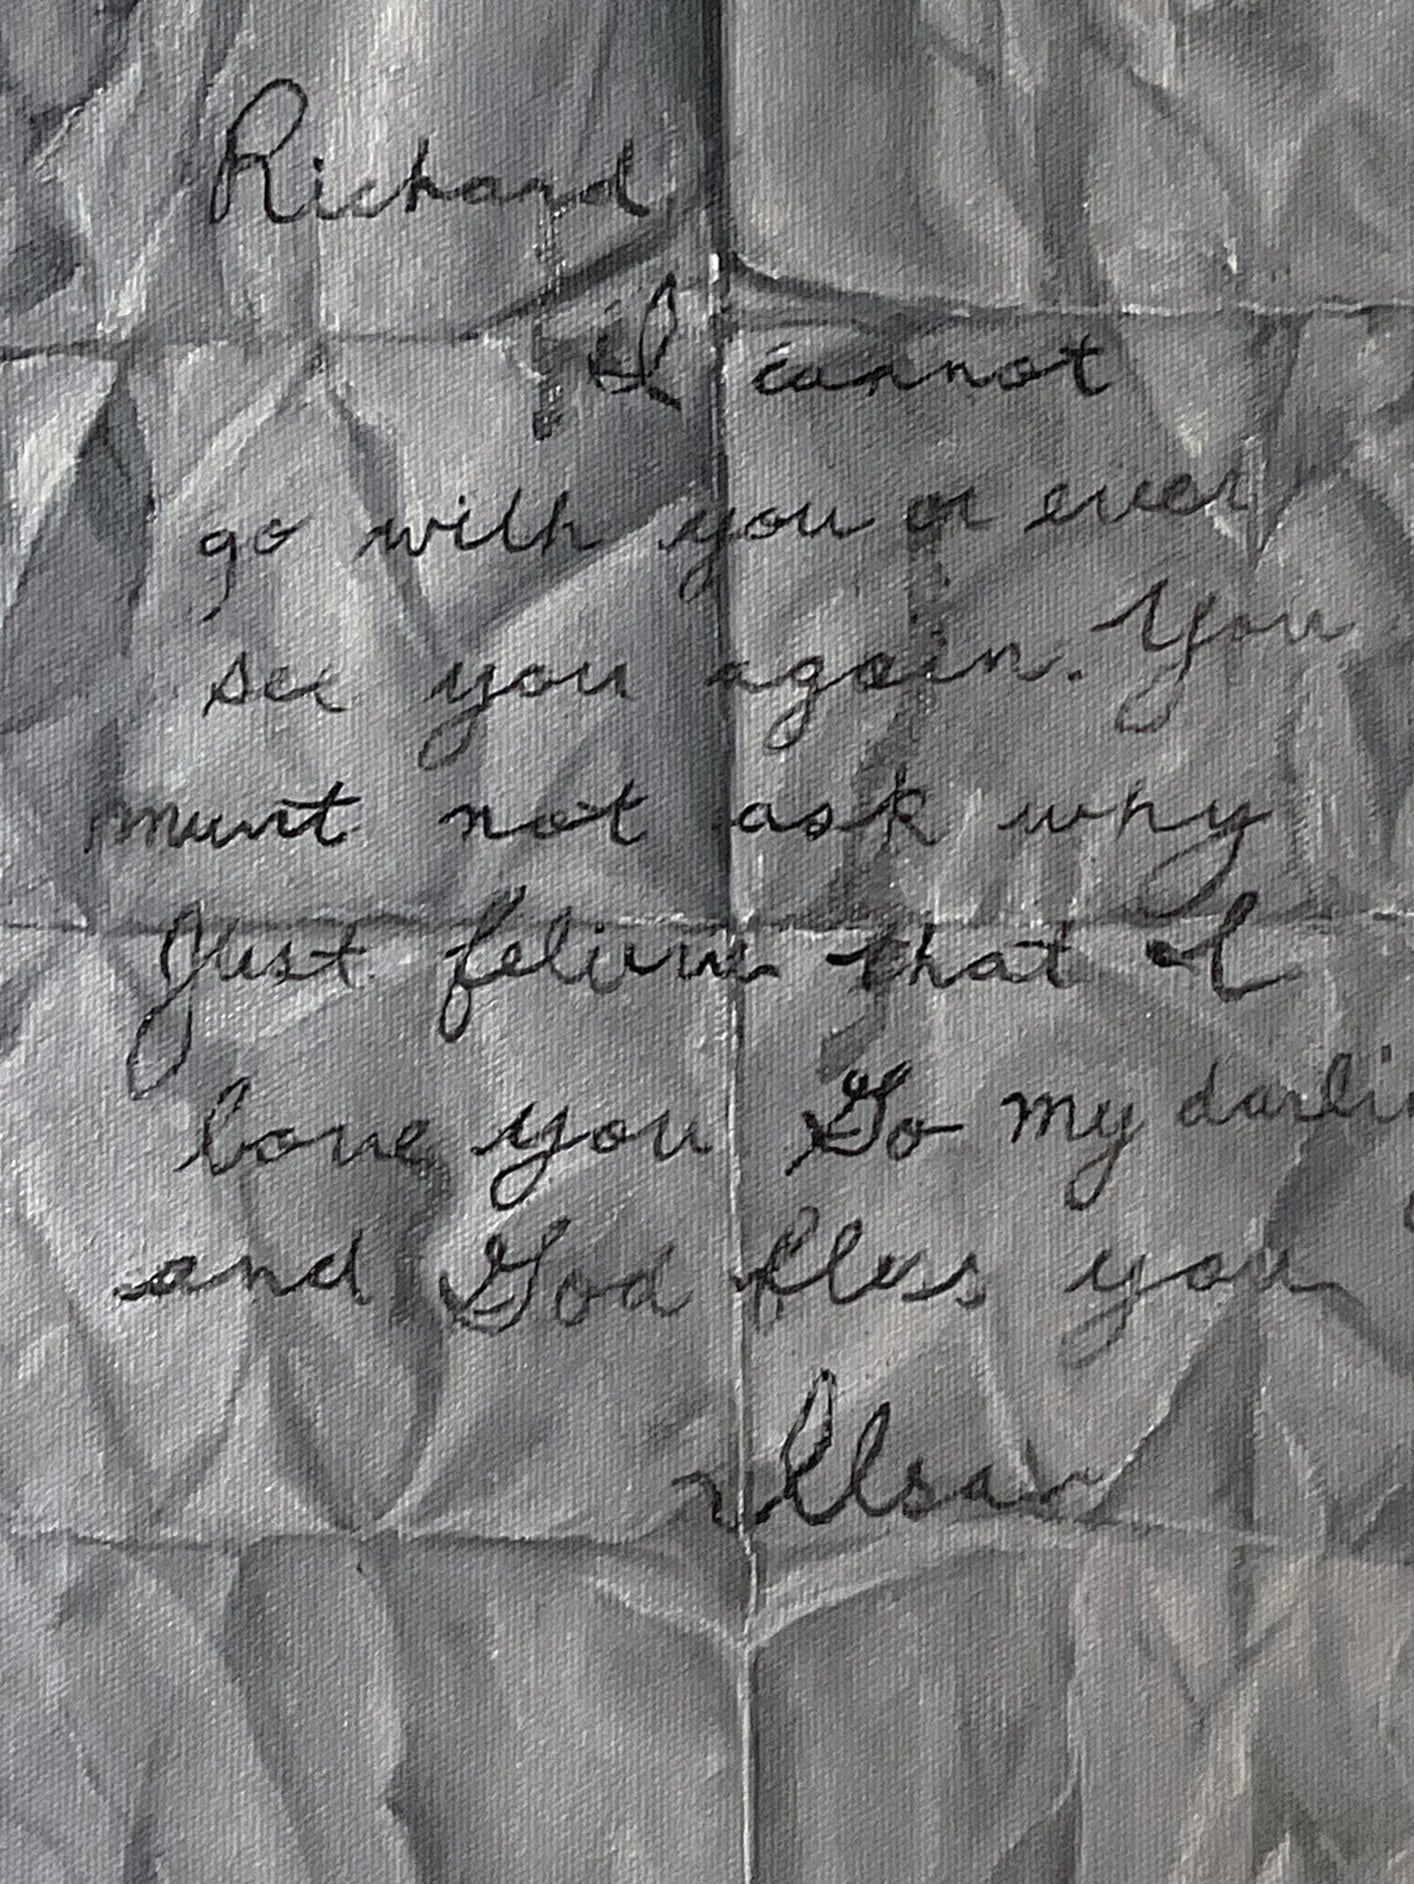 Richard,
I cannot
go with you or ever
see you again. You
must not ask why
Just believe that I
love you Go my darling
and God bless you
Ilsa